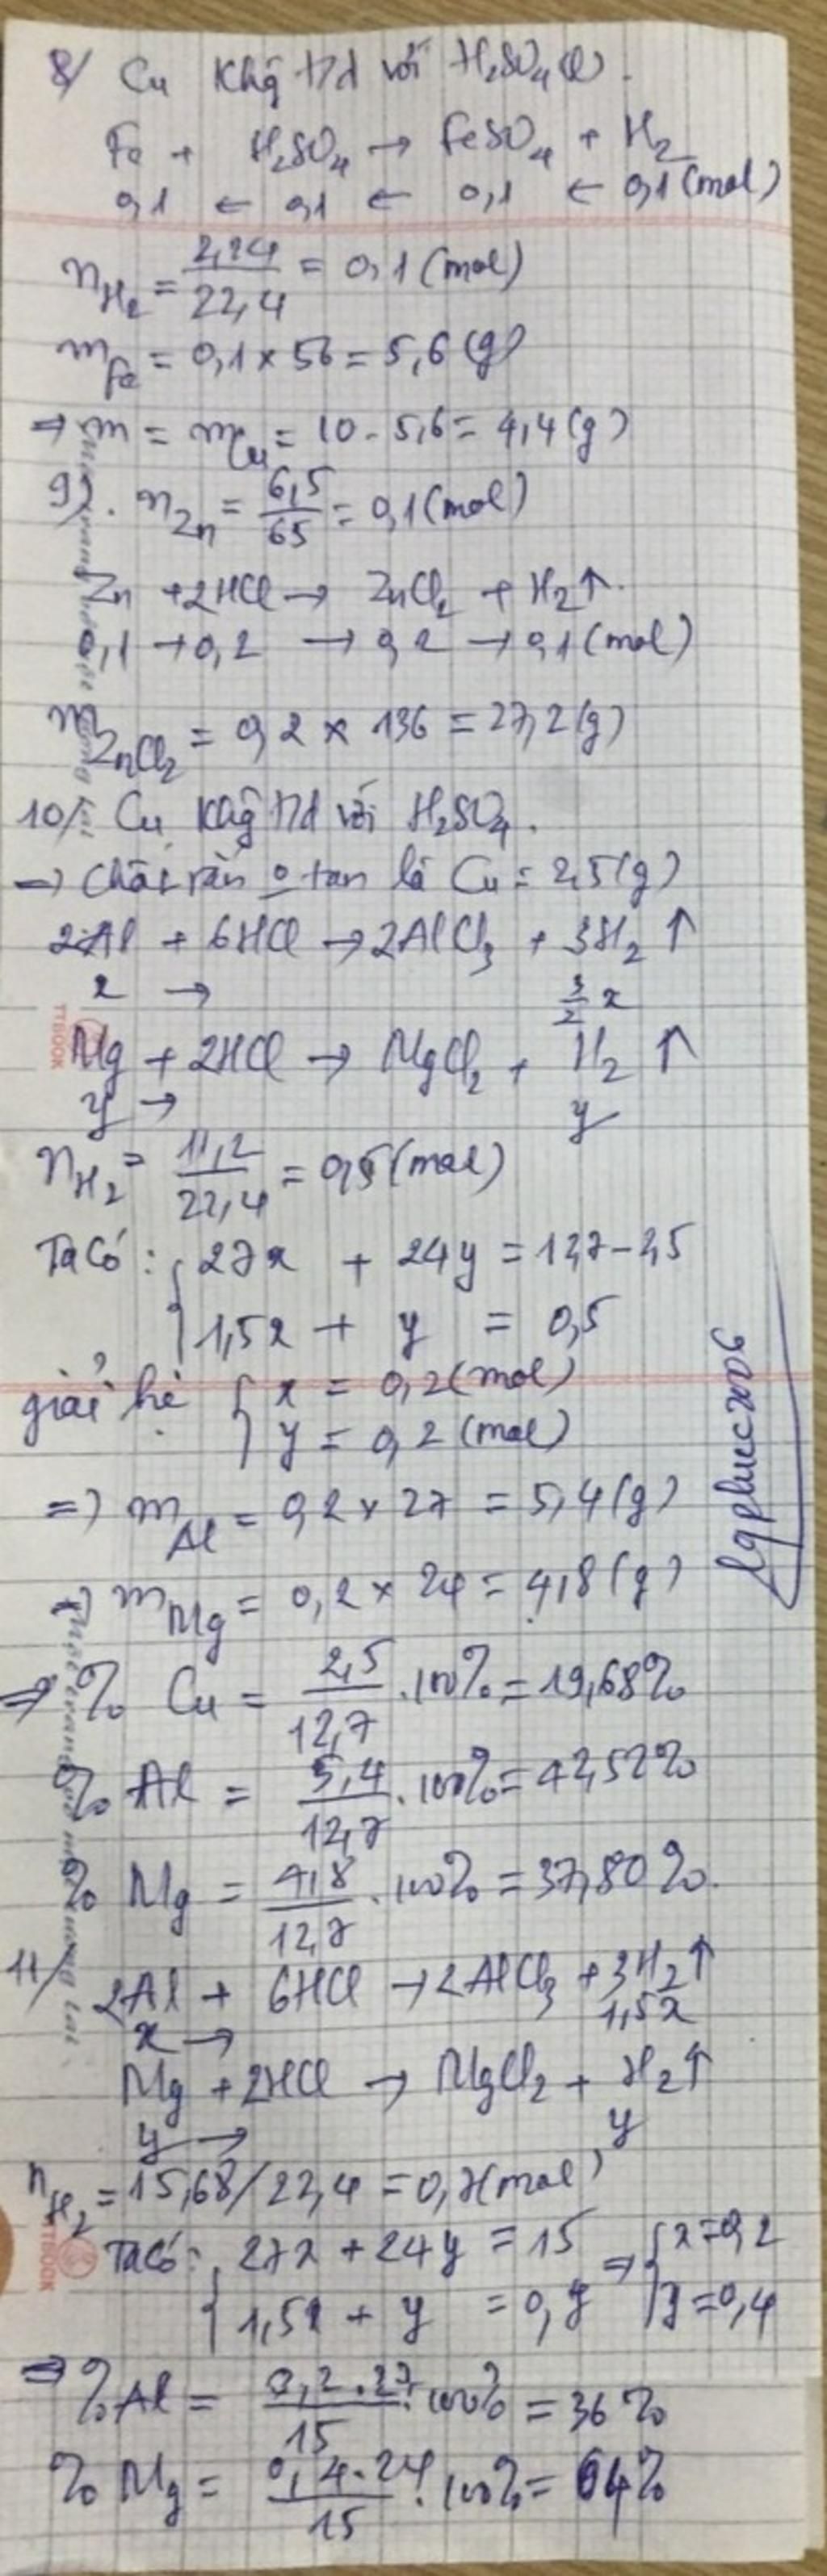 8/ Cu khg t/d với H₂SO₄(l).
Fe + H₂SO₄ → FeSO₄ + H₂
0,1 ← 0,1 ← 0,1 ← 0,1 (mol)
n_H₂ = 2,24/22,4 = 0,1 (mol)
m_Fe = 0,1 × 56 = 5,6 (g)
⇒ m = m_Cu = 10 - 5,6 = 4,4 (g)
9). n_Zn = 6,5/65 = 0,1 (mol)
Zn + 2HCl → ZnCl₂ + H₂↑
0,1 → 0,2 → 0,2 → 0,1 (mol)
m_ZnCl₂ = 0,2 × 136 = 27,2 (g)
10/ Cu khg t/d với H₂SO₄.
⇒ Chất rắn o tan là Cu = 2,5 (g)
2Al + 6HCl → 2AlCl₃ + 3H₂ ↑
x → 3/2 x
Mg + 2HCl → MgCl₂ + H₂ ↑
y → y
n_H₂ = 11,2/22,4 = 0,5 (mol)
Ta có: { 27x + 24y = 12,7 - 2,5
1,5x + y = 0,5
giải hệ { x = 0,2 (mol)
y = 0,2 (mol)
⇒ m_Al = 0,2 × 27 = 5,4 (g)
⇒ m_Mg = 0,2 × 24 = 4,8 (g)
⇒ % Cu = 2,5/12,7 . 100% = 19,68%
% Al = 5,4/12,7 . 100% = 42,52%
% Mg = 4,8/12,7 . 100% = 37,80%.
lgphuc2006
11/ 2Al + 6HCl → 2AlCl₃ + 3H₂↑
x → 1,5x
Mg + 2HCl → MgCl₂ + H₂↑
y → y
n_H₂ = 15,68/22,4 = 0,7 (mol)
Ta có: { 27x + 24y = 15 ⇒ { x = 0,2
1,5x + y = 0,7 y = 0,4
⇒ %Al = 0,2.27/15 . 100% = 36%
% Mg = 0,4.24/15 . 100% = 64%